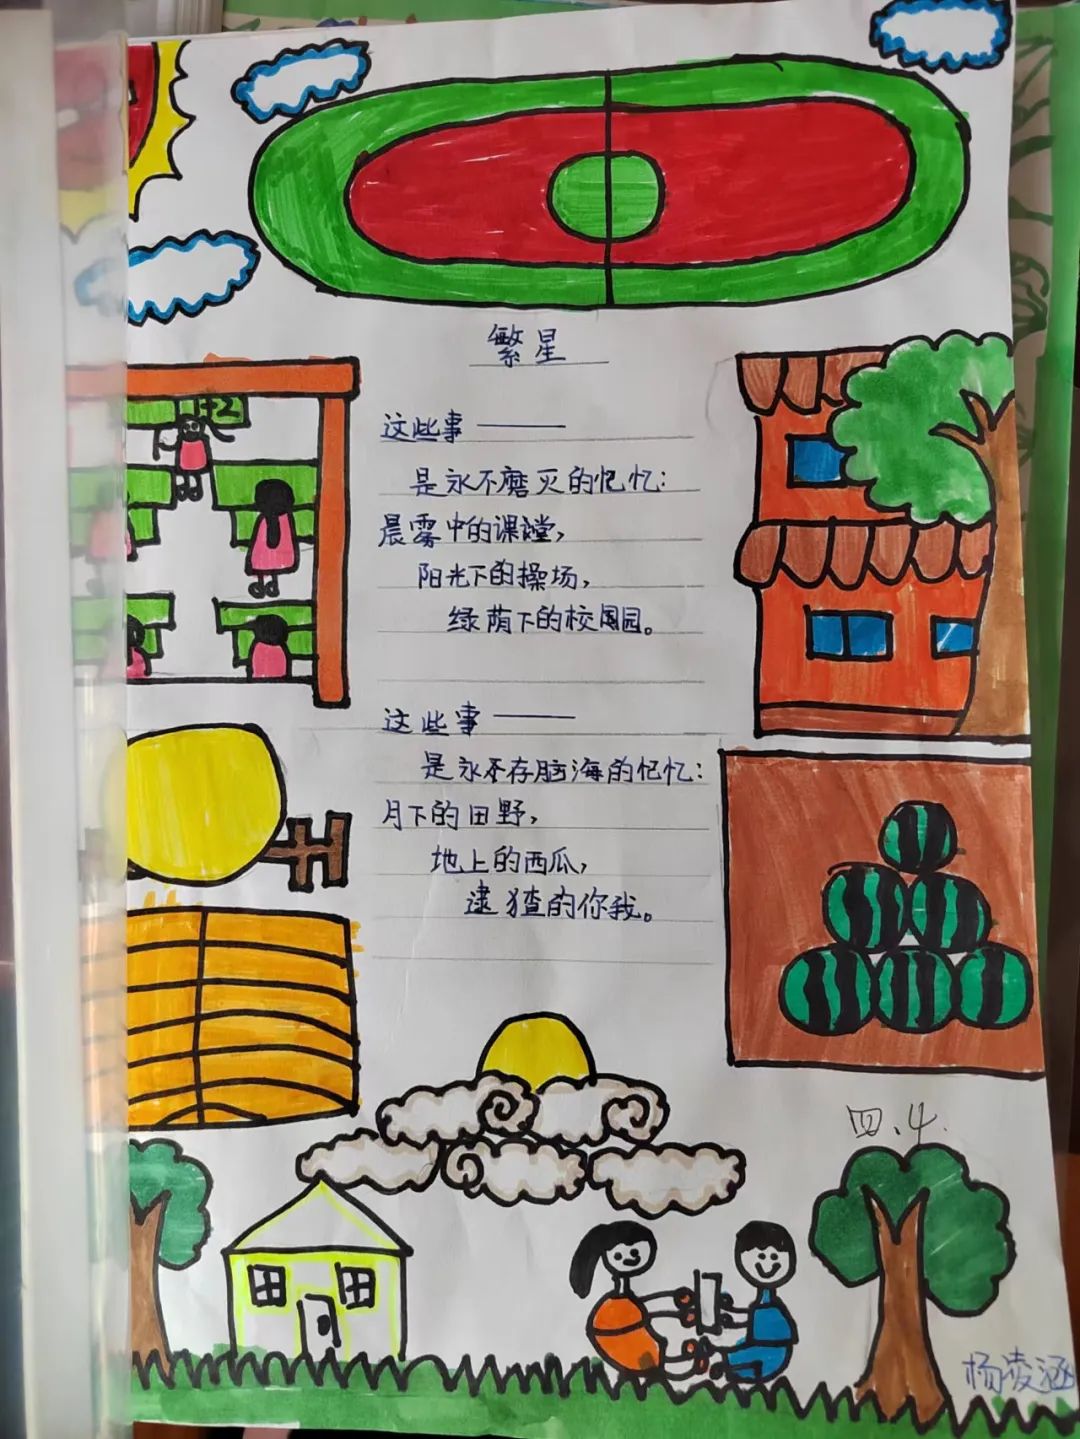 繁星
这些事——
是永不磨灭的记忆：
晨雾中的课堂，
阳光下的操场，
绿荫下的校园。
这些事——
是永不存脑海的记忆：
月下的田野，
地上的西瓜，
逮猹的你我。
四.4.
杨凌涵